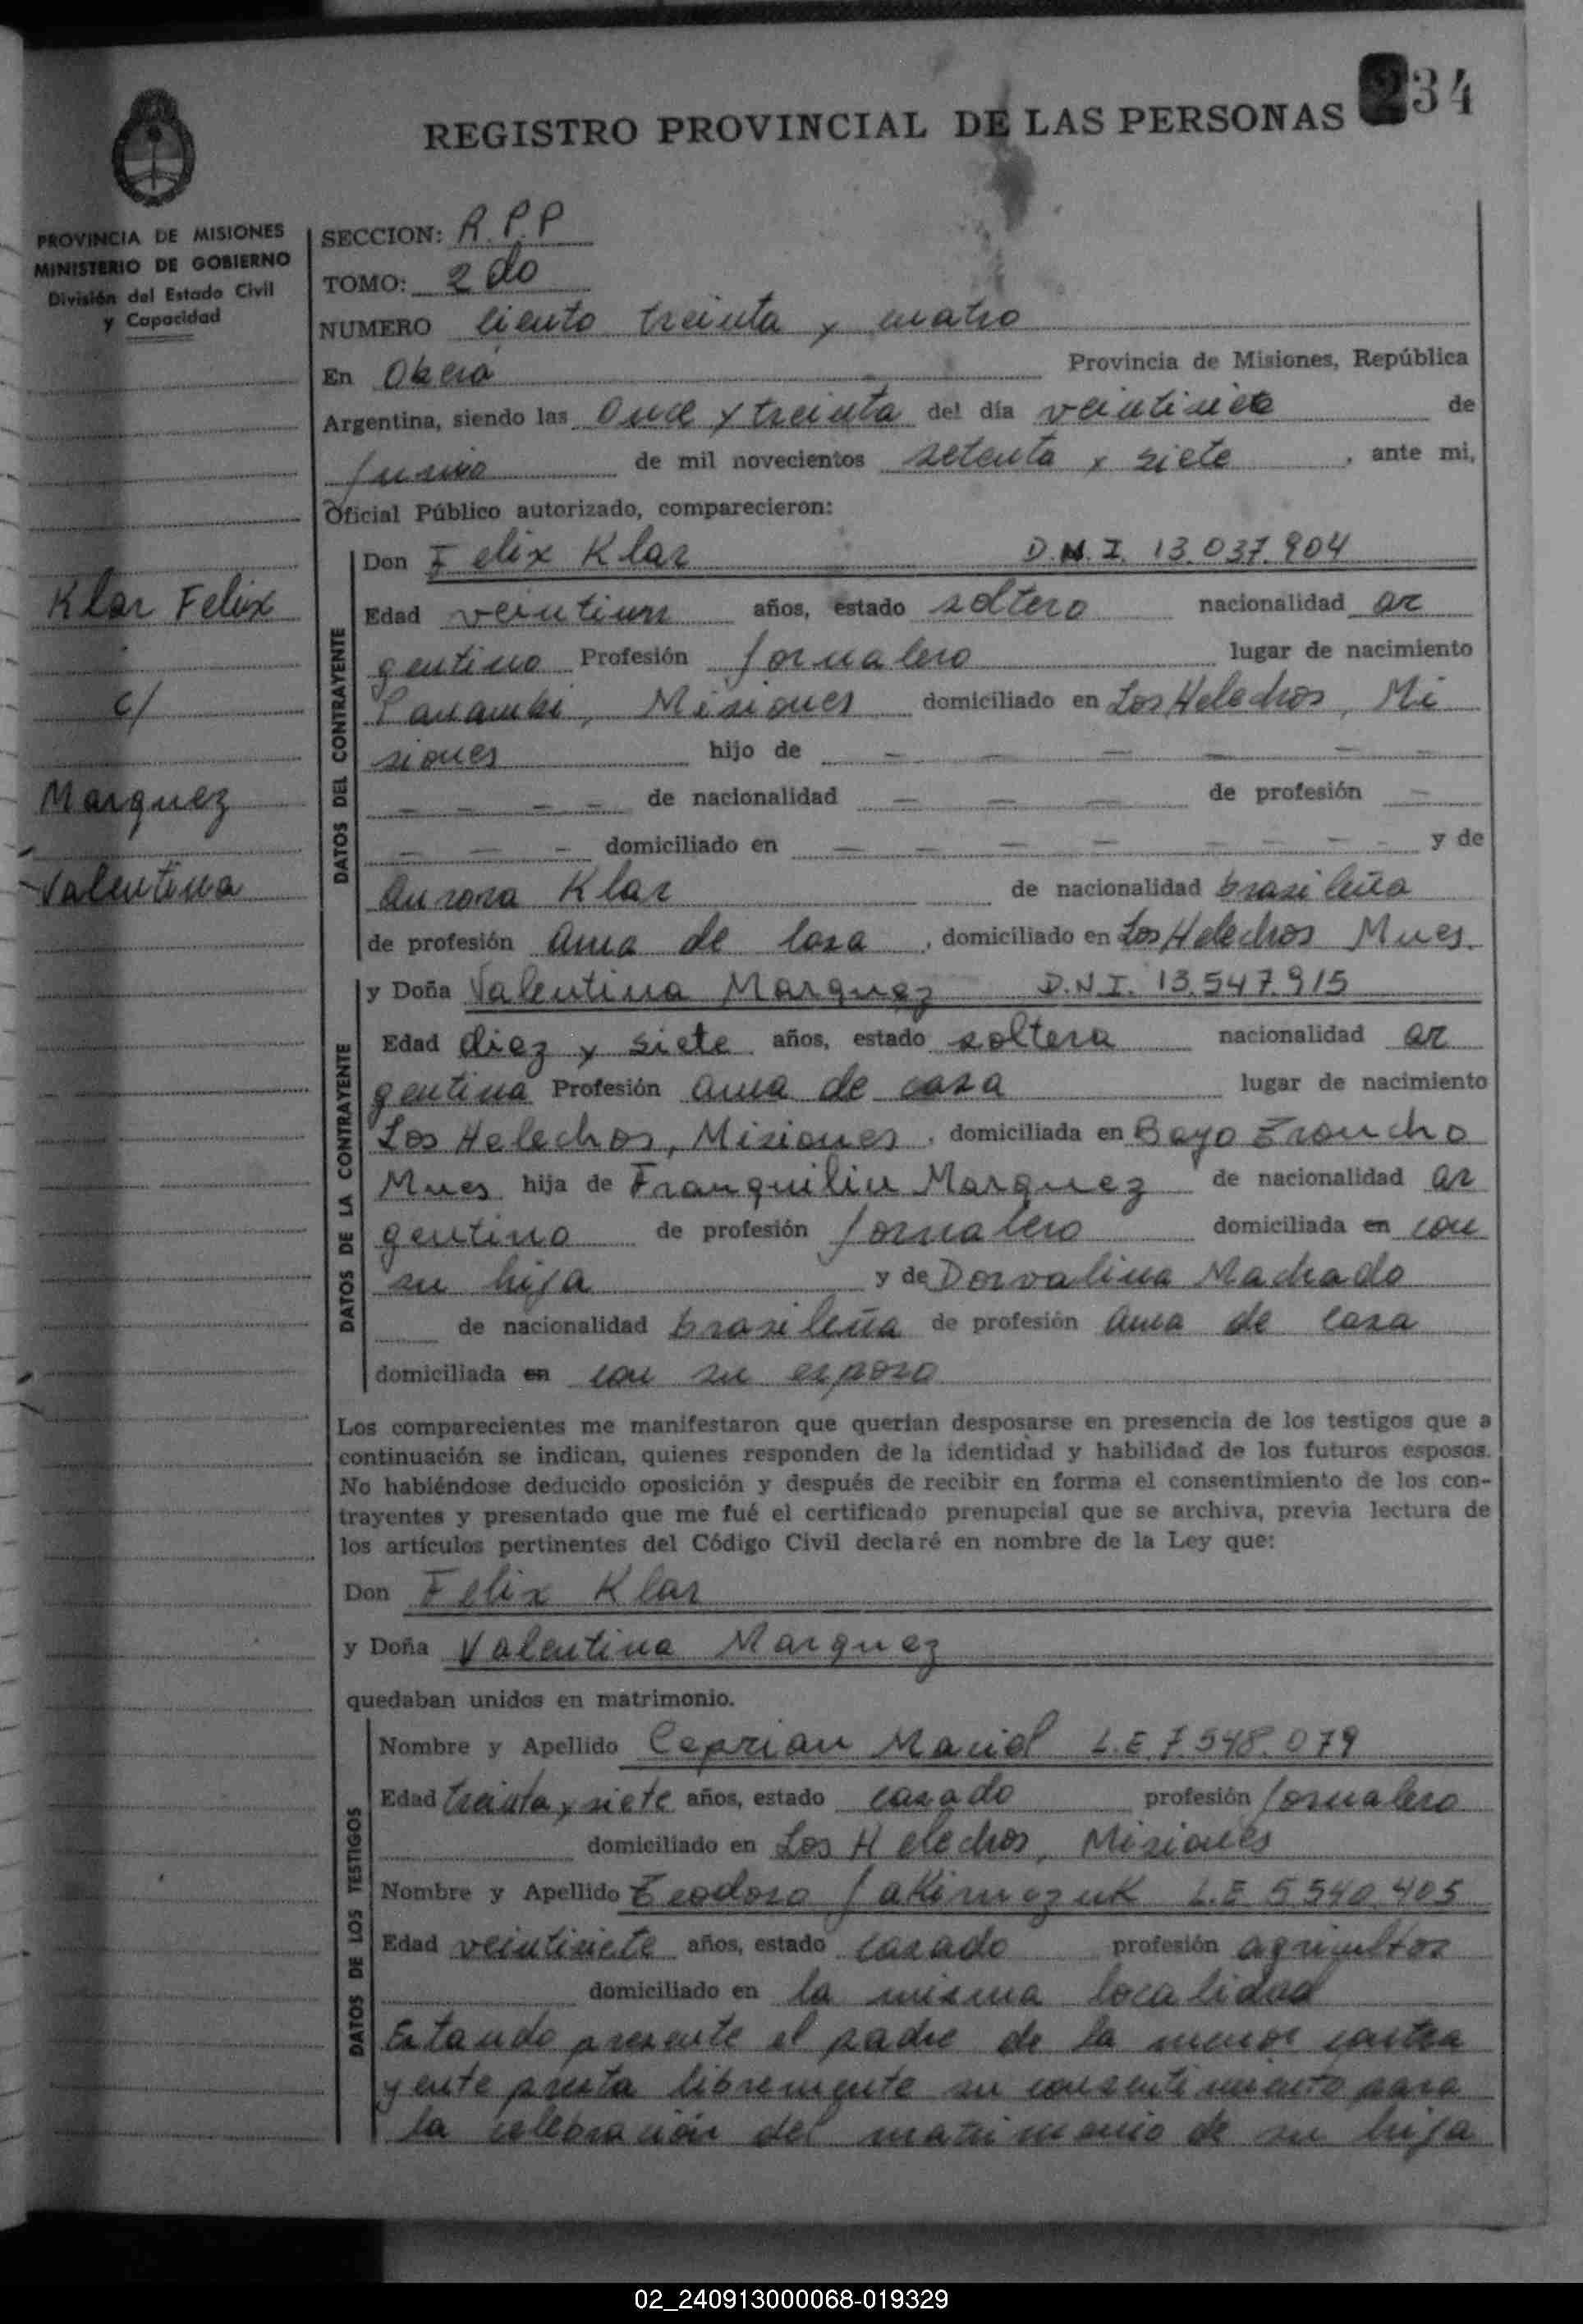 234
REGISTRO PROVINCIAL DE LAS PERSONAS
PROVINCIA DE MISIONES
MINISTERIO DE GOBIERNO
División del Estado Civil
y Capacidad
SECCION: R.P.P
TOMO: 2do
NUMERO ciento treinta y cuatro
En Oberá Provincia de Misiones, República
Argentina, siendo las once y treinta del día veintisiete de
Junio de mil novecientos setenta y siete, ante mi,
Oficial Público autorizado, comparecieron:
Klar Felix
c/
Marquez
Valentina
DATOS DEL CONTRAYENTE
Don Felix Klar D.N.I. 13.037.904
Edad veintiun años, estado soltero nacionalidad ar
gentino Profesión Jornalero lugar de nacimiento
Panambi, Misiones domiciliado en Los Helechos, Mi
siones hijo de — — — — — —
— — — — de nacionalidad — — — de profesión —
— — — domiciliado en — — — — — — — y de
Aurora Klar de nacionalidad brasileña
de profesión ama de casa, domiciliado en Los Helechos Mnes.
DATOS DE LA CONTRAYENTE
y Doña Valentina Marquez D.N.I. 13.547.915
Edad diez y siete años, estado soltera nacionalidad ar
gentina Profesión ama de casa lugar de nacimiento
Los Helechos, Misiones, domiciliada en Bayo Troncho
Mnes hija de Franquilin Marquez de nacionalidad ar
gentino de profesión Jornalero domiciliada en con
su hija y de Dorvalina Machado
de nacionalidad brasileña de profesión ama de casa
domiciliada en con su esposo
Los comparecientes me manifestaron que querían desposarse en presencia de los testigos que a
continuación se indican, quienes responden de la identidad y habilidad de los futuros esposos.
No habiéndose deducido oposición y después de recibir en forma el consentimiento de los con-
trayentes y presentado que me fué el certificado prenupcial que se archiva, previa lectura de
los artículos pertinentes del Código Civil declaré en nombre de la Ley que:
Don Felix Klar
y Doña Valentina Marquez
quedaban unidos en matrimonio.
DATOS DE LOS TESTIGOS
Nombre y Apellido Ceprian Maciel L.E 7.548.079
Edad treinta y siete años, estado casado profesión Jornalero
domiciliado en Los Helechos, Misiones
Nombre y Apellido Teodoro Jakimczuk L.E 5.540.405
Edad veintisiete años, estado casado profesión agricultor
domiciliado en la misma localidad
Estando presente el padre de la menor contra
yente presta libremente su consentimiento para
la celebración del matrimonio de su hija
02_240913000068-019329